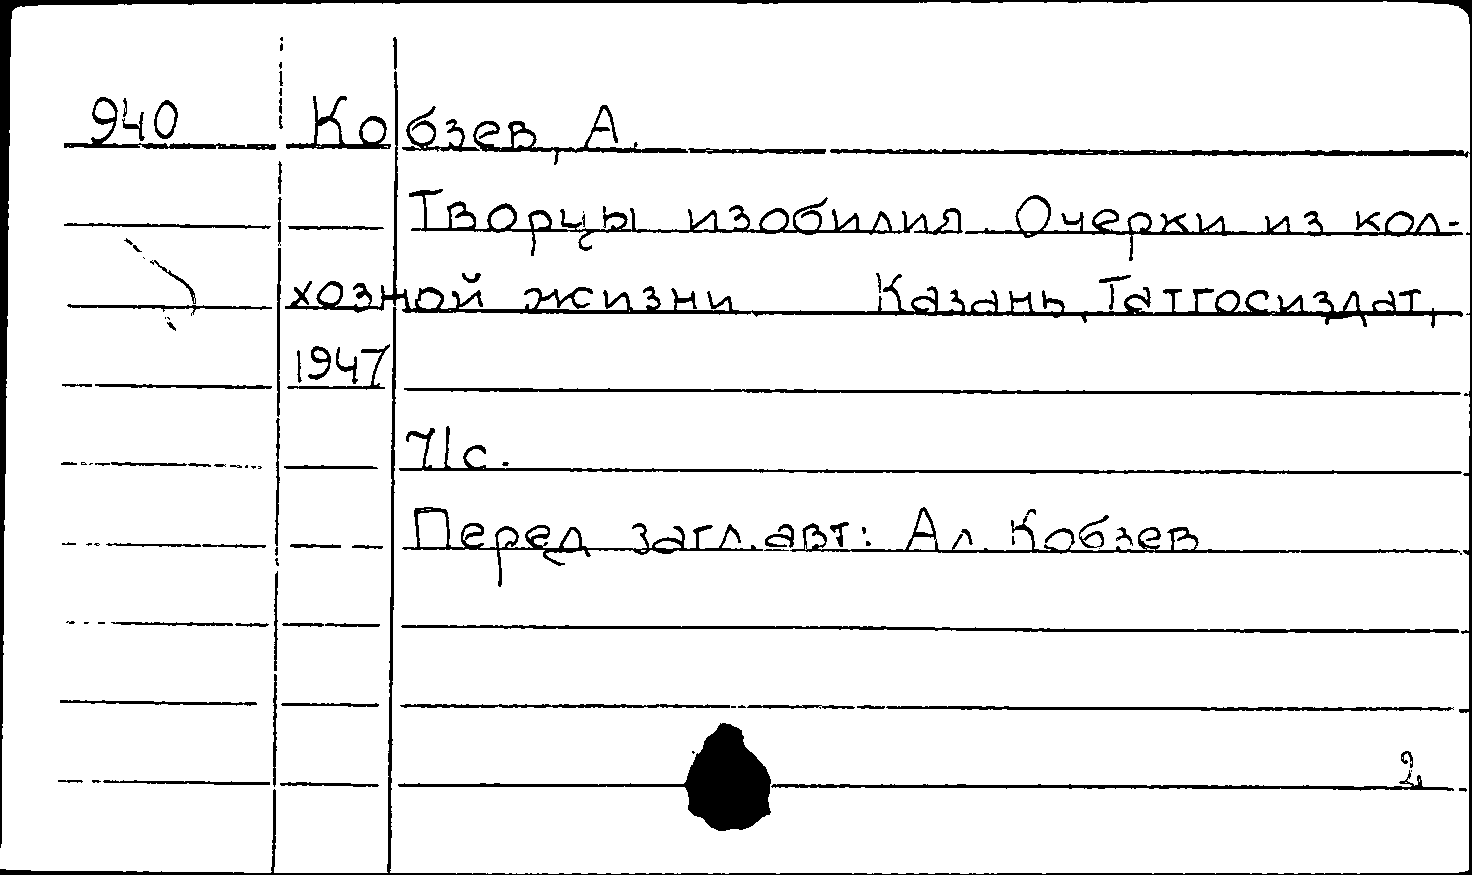 940 Кобзев, А.
Творцы изобилия. Очерки из кол-
хозной жизни. Казань, Татгосиздат,
1947
71с.
Перед загл. авт.: Ал. Кобзев
2